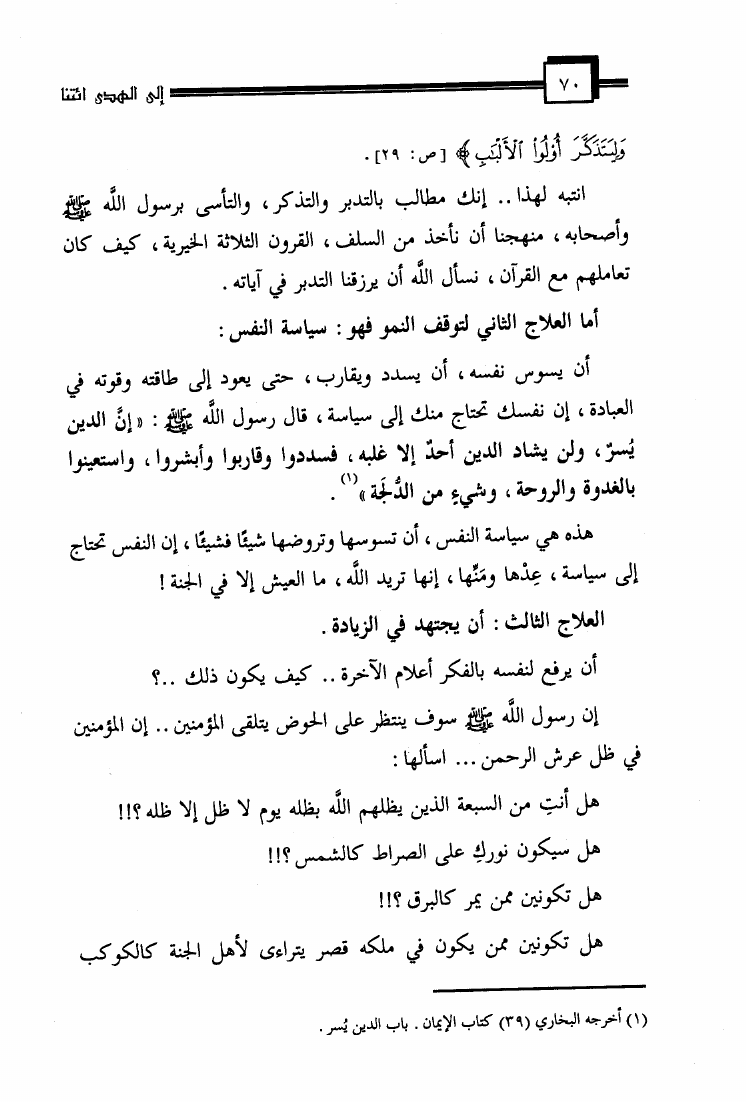 ٧٠
إلى الهدى ائتنا
وَلِيَتَذَكَّرَ أُوْلُواْ ٱلْأَلْبَٰبِ ﴾ [ص: ٢٩].
انتبه لهذا.. إنك مطالب بالتدبر والتذكر، والتأسى برسول اللَّه ﷺ
وأصحابه، منهجنا أن نأخذ من السلف، القرون الثلاثة الخيرية، كيف كان
تعاملهم مع القرآن، نسأل اللَّه أن يرزقنا التدبر في آياته.
أما العلاج الثاني لتوقف النمو فهو: سياسة النفس:
أن يسوس نفسه، أن يسدد ويقارب، حتى يعود إلى طاقته وقوته في
العبادة، إن نفسك تحتاج منك إلى سياسة، قال رسول اللَّه ﷺ: «إنَّ الدين
يُسرٌ، ولن يشاد الدين أحدٌ إلا غلبه، فسددوا وقاربوا وأبشروا، واستعينوا
بالغدوة والروحة، وشيءٍ من الدُّلجة»(١).
هذه هي سياسة النفس، أن تسوسها وتروضها شيئًا فشيئًا، إن النفس تحتاج
إلى سياسة، عِدْها ومَنِّها، إنها تريد اللَّه، ما العيش إلا في الجنة!
العلاج الثالث: أن يجتهد في الزيادة.
أن يرفع لنفسه بالفكر أعلام الآخرة.. كيف يكون ذلك ..؟
إن رسول اللَّه ﷺ سوف ينتظر على الحوض يتلقى المؤمنين.. إن المؤمنين
في ظل عرش الرحمن... اسألها:
هل أنتِ من السبعة الذين يظلهم اللَّه بظله يوم لا ظل إلا ظله؟!!
هل سيكون نوركِ على الصراط كالشمس؟!!
هل تكونين ممن يمر كالبرق؟!!
هل تكونين ممن يكون في ملكه قصر يتراءى لأهل الجنة كالكوكب
(١) أخرجه البخاري (٣٩) كتاب الإيمان. باب الدين يُسر.